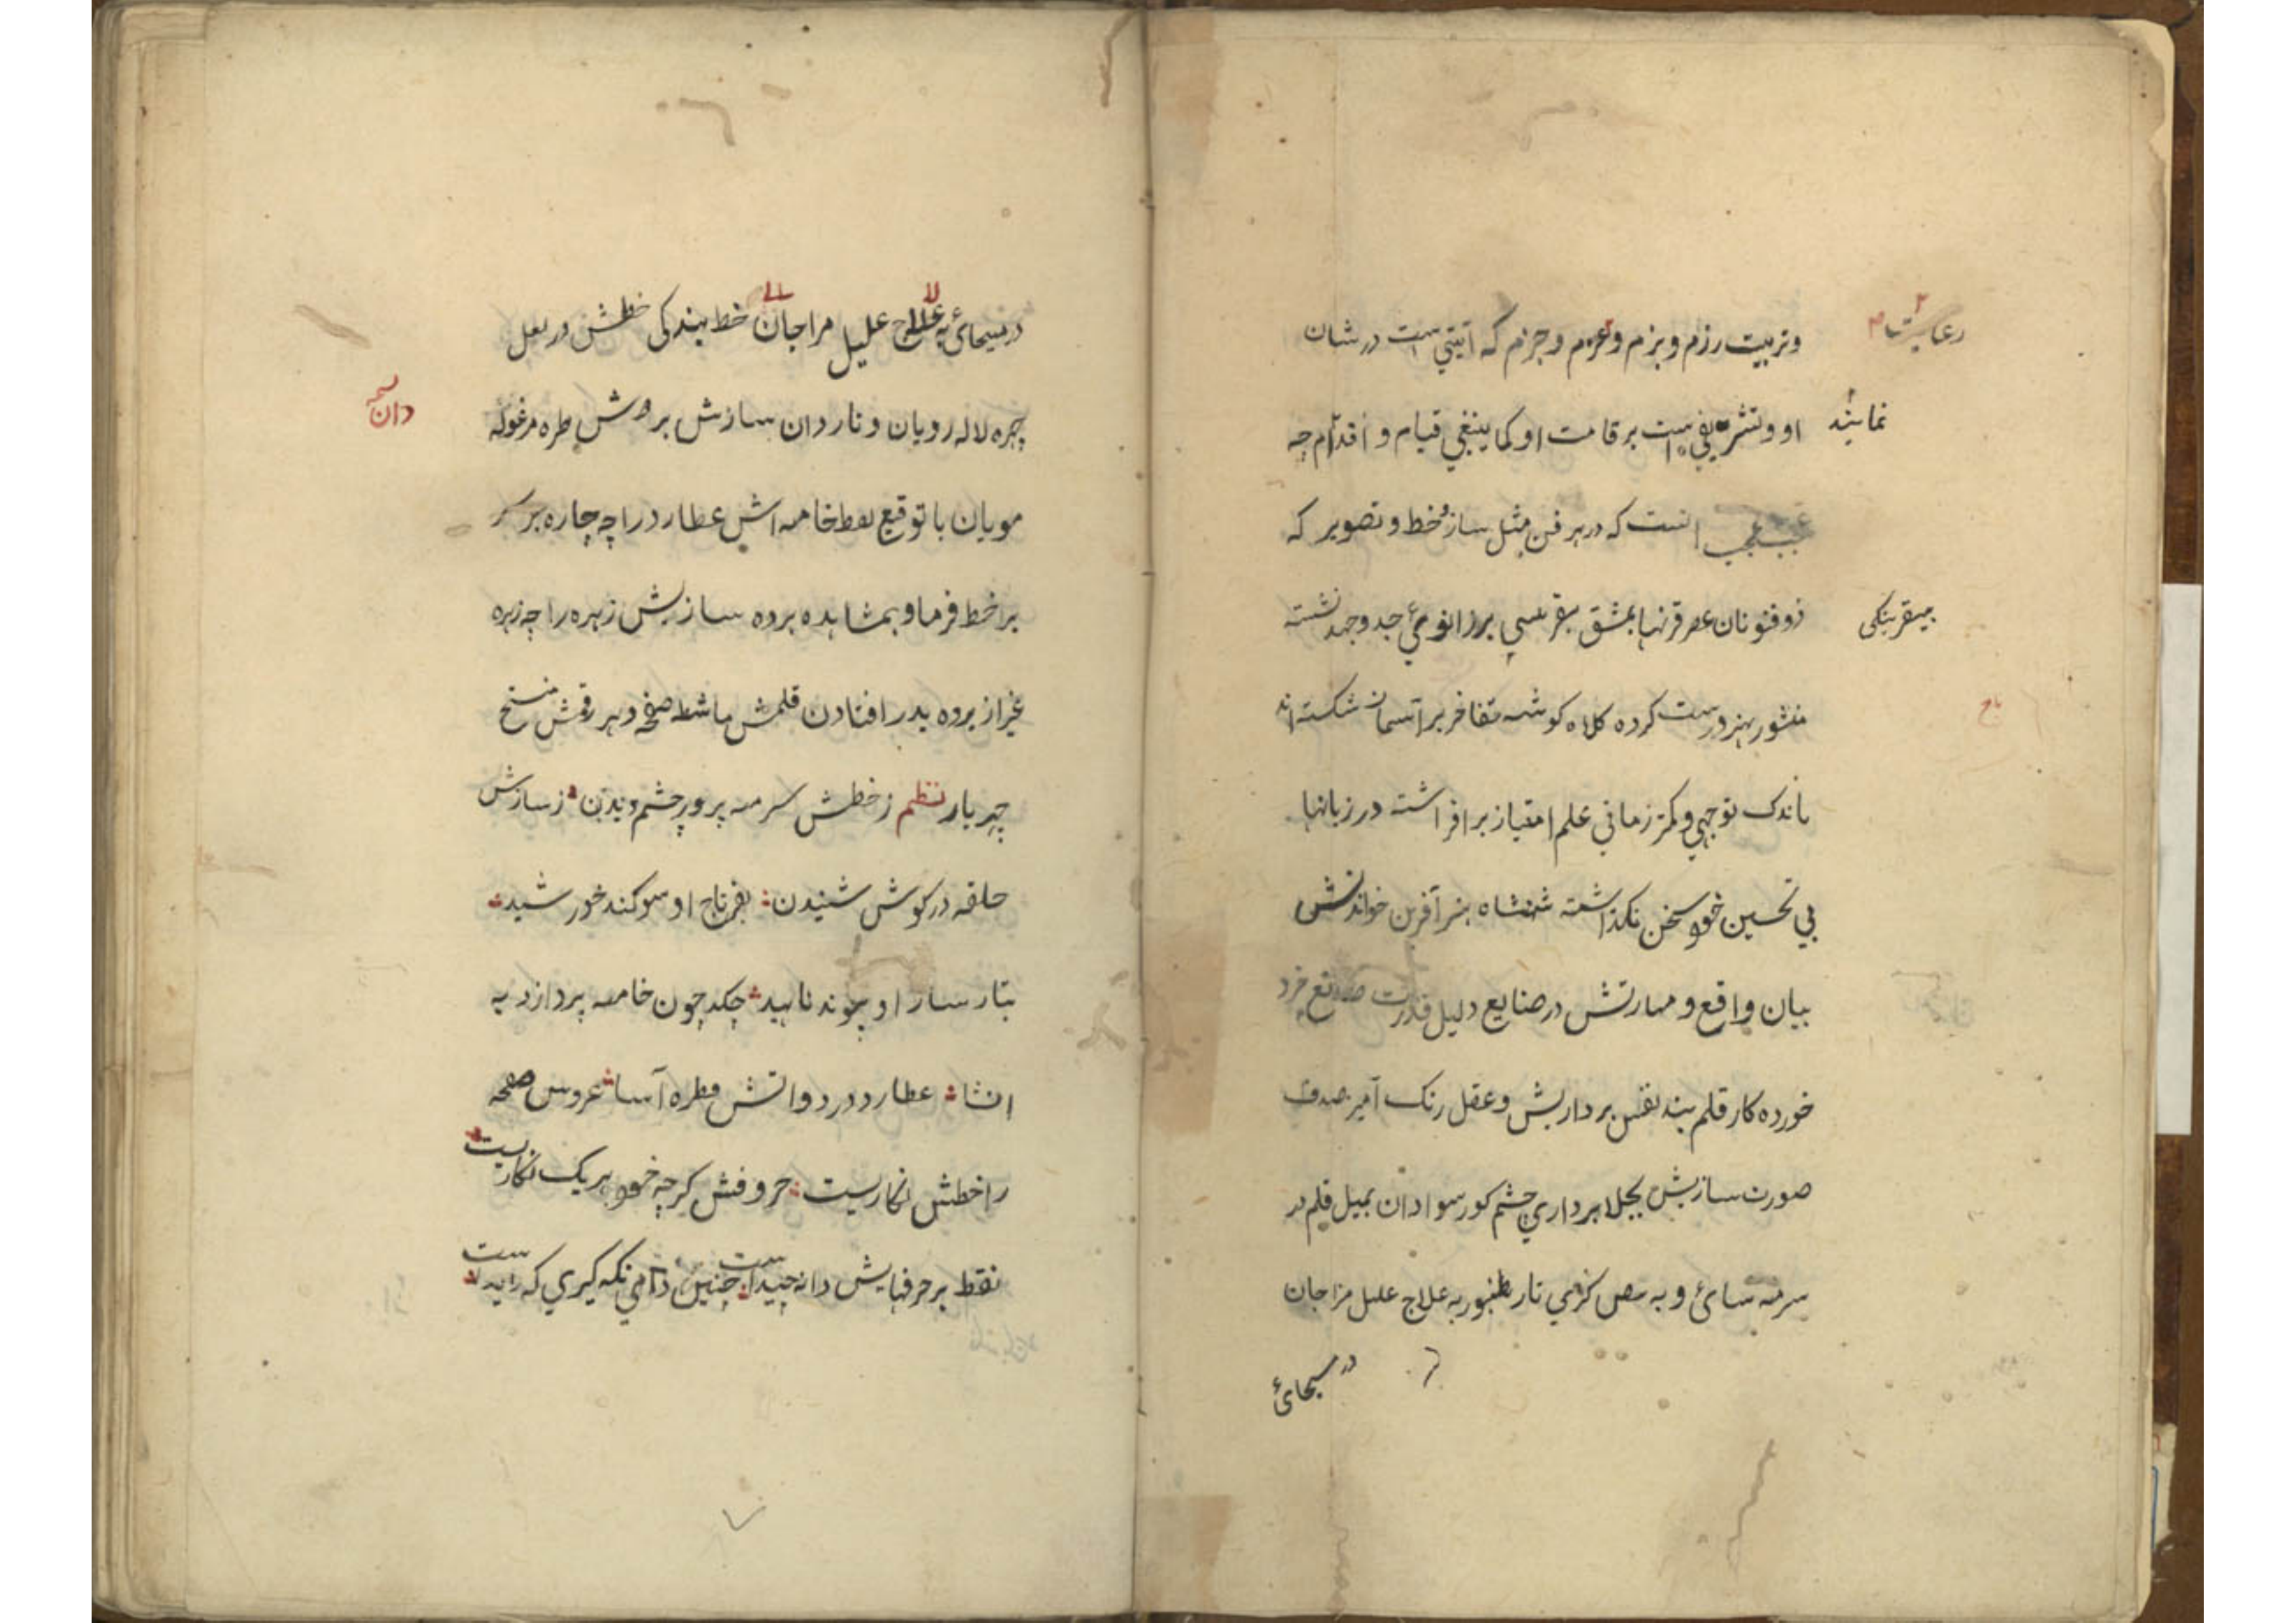 رعایت
وتربیت رزم و بزم و عزم و جزم که آیتی است در شان
نمایند
او و تشریفی است بر قامت او کما ینبغی قیام و اقدام چه
عجب است که در هر فن مثل ساز و خط و تصویر که
ذوفنونان عصر قرنها بمشق برزانوی جد و جهد نشسته
منشور هنر درست کرده کلاه کوشه تفاخر بر آسمان شکسته اند
باندک توجهی و کمتر زمانی علم امتیاز برافراشته در زبانها
بی تحسین خود سخن نکذاشته شهنشاه هنر آفرین خواندنش
بیان واقع و مهارتش در صنایع دلیل قدرت صانع خرد
خورده کار قلم بند نقش بردازیش و عقل رنک آمیز صدف
صورت سازیش بجلا برداری چشم کور سوادان بمیل قلم در
سرمه سائی و به تار طنبور به علاج علیل مزاجان
در مسیحائی
در مسیحائی به علاج علیل مزاجان خط بندکی خطش در بغل
چهره لاله رویان و تار دان سازش بر دوش طره مرغوله
دان
مویان با توقیع نقط خامه اش عطارد را چه چاره بر سر
بر خط فرما و بمشاهده برده سازیش زهره را چه زهره
غیر از برده بدر افتادن قلمش ماشطه صفحه و هر رقمش نسخ
چهر بار نظم ز خطش سرمه پرور چشم دیدن ز سازش
حلقه در کوش شنیدن بفر تاج او سوکند خورشید
بتار ساز او پیوند ناهید چکد چون خامه پردازد به
انشا عطارد در دواتش قطره آسا عروس صفحه
را خطش نکاریست حروفش کرچه خود هر یک نکاریست
نقط بر حرفهایش دانه چیداست چنین دامی نکه کیری که دیدست